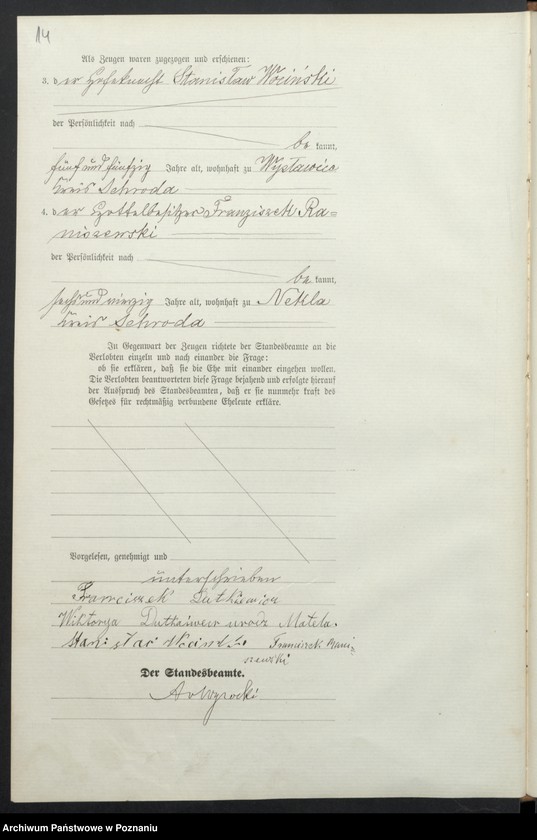 14
Als Zeugen waren zugezogen und erschienen:
3. der Hofeknecht Stanisław Woziński
der Persönlichkeit nach
be kannt,
fünf und fünfzig Jahre alt, wohnhaft zu Wysławice
Kreis Schroda
4. der Hottelbesitzer Franziszek Ra=
niszewski
der Persönlichkeit nach
be kannt,
sechs und vierzig Jahre alt, wohnhaft zu Nekla
Kreis Schroda
In Gegenwart der Zeugen richtete der Standesbeamte an die
Verlobten einzeln und nach einander die Frage:
ob sie erklären, daß sie die Ehe mit einander eingehen wollen.
Die Verlobten beantworteten diese Frage bejahend und erfolgte hierauf
der Ausspruch des Standesbeamten, daß er sie nunmehr kraft des
Gesetzes für rechtmäßig verbundene Eheleute erkläre.
Vorgelesen, genehmigt und
unterschrieben
Franciszek Dutkiewicz
Wiktorya urodz Matela.
Franciszek Rani=
szewski
Der Standesbeamte.
Archiwum Państwowe w Poznaniu